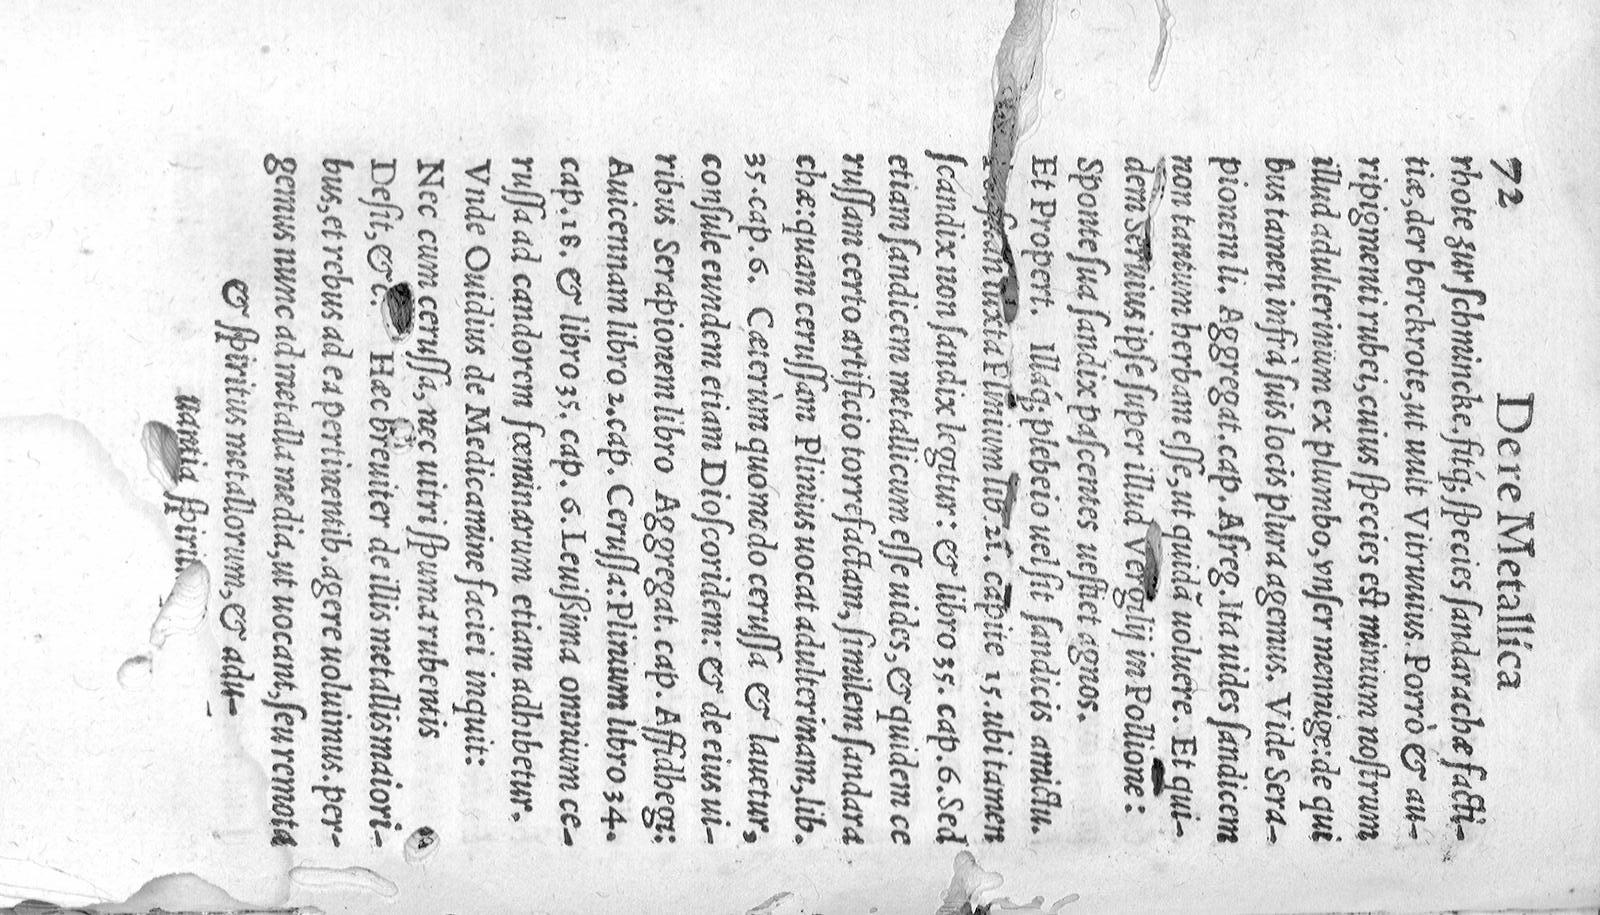 72 De re Metallica
rhote zur schmincke. fitq́; species sandarachæ facti-
tiæ, der berckrote, ut uult Vitruuius. Porrò & au-
ripigmenti rubei, cuius species est minium nostrum
illud adulterinum ex plumbo, vnser mennige: de qui
bus tamen infrà suis locis plura agemus. Vide Sera-
pionem li. Aggregat. cap. Asreg. Ita uides sandicem
non tantum herbam esse, ut quidã uoluere. Et qui-
dem Seruius ipse super illud Vergilij in Pollione:
Sponte sua sandix pascentes uestiet agnos.
Et Propert. Illaq́; plebeio uel sit sandicis amictu.
iuxta Plinium lib. 21. capite 15. ubi tamen
scandix non sandix legitur: & libro 35. cap. 6. Sed
etiam sandicem metallicum esse uides, & quidem ce
russam certo artificio torrefactam, similem sandara
chæ: quam cerussam Plinius uocat adulterinam, lib.
35. cap. 6. Cæterùm quomodo cerussa & lauetur,
consule eundem etiam Dioscoridem: & de eius ui-
ribus Serapionem libro Aggregat. cap. Affidhegi:
Auicennam libro 2. cap. Cerussa: Plinium libro 34.
cap. 18. & libro 35. cap. 6. Leuißima omnium ce-
russa ad candorem fœminarum etiam adhibetur.
Vnde Ouidius de Medicamine faciei inquit:
Nec cum cerussa, nec uitri spuma rubentis
Desit, &c. Hæc breuiter de illis metallis maiori-
bus, et rebus ad ea pertinentib. agere uoluimus. per-
gemus nunc ad metalla media, ut uocant, seu remota
& spiritus metallorum, & adu-
mantia spiritu